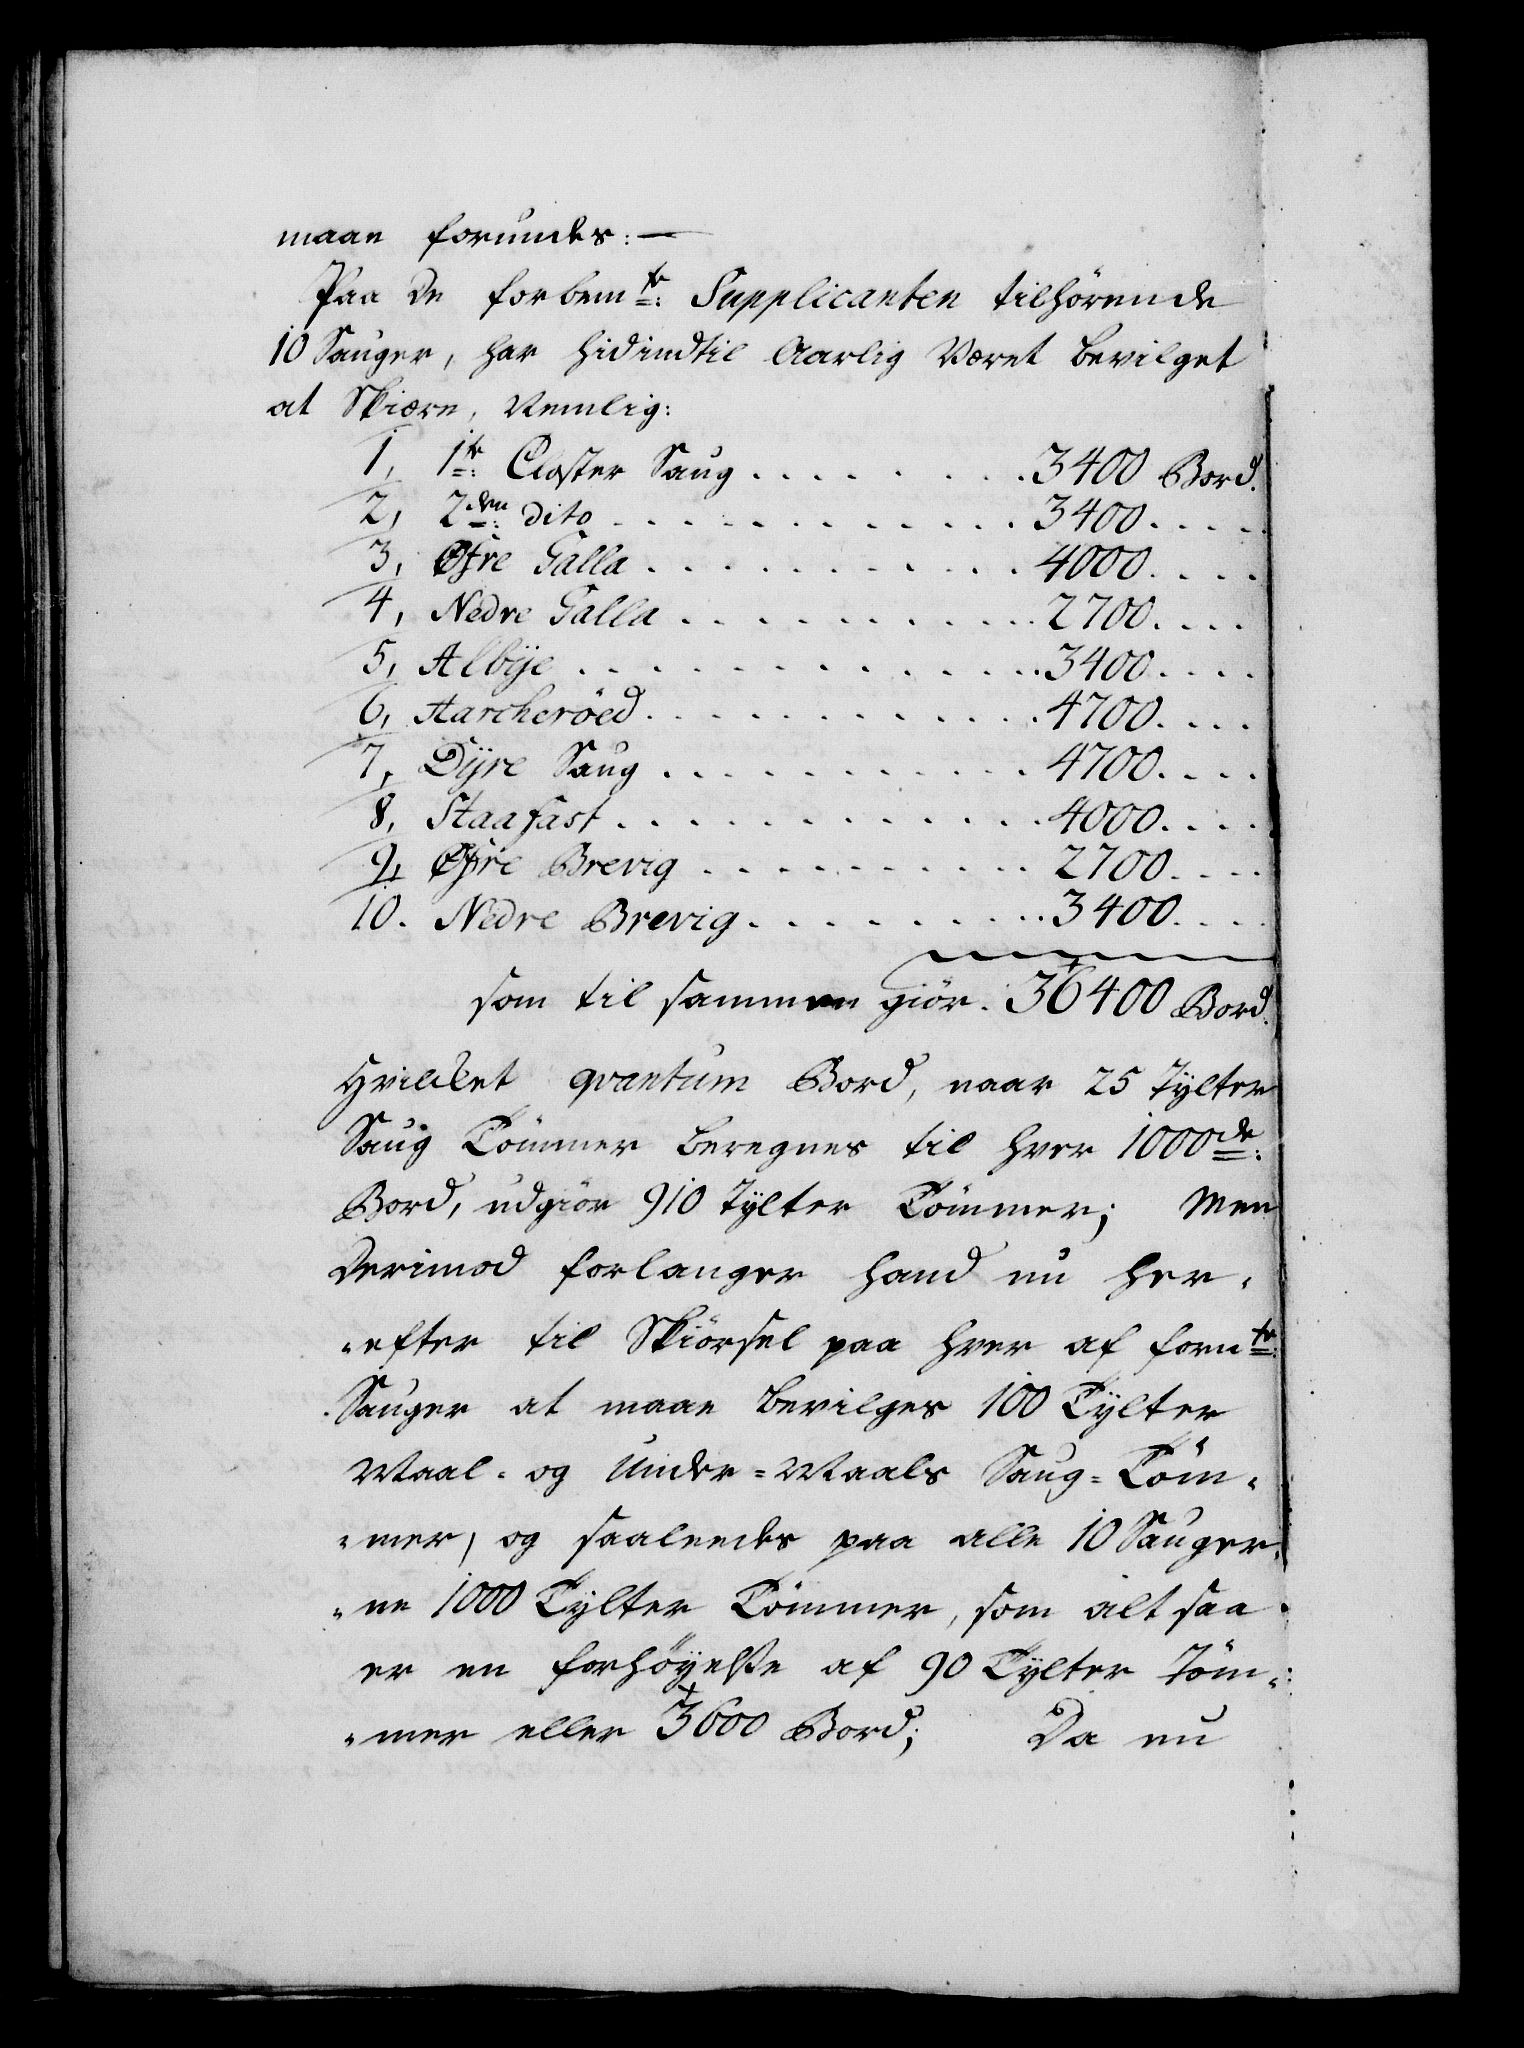 maae forundes: —
Paa de forbemte: Supplicanten tilhörende
10 Sauger, har hidindtil Aarlig været bevilget
at Skiære, Nemlig:
1, 1te: Closter Saug . . . . . . . . 3400 Bord.
2, 2den: dito . . . . . . . . . . . 3400. . . .
3, Øfre Falla . . . . . . . . . . . 4000. . . .
4, Nedre Falla . . . . . . . . . . 2700. . . .
5, Albÿe . . . . . . . . . . . . . 3400. . . .
6, Aarcheröed. . . . . . . . . . . 4700. . . .
7, Dÿre Saug . . . . . . . . . . . 4700. . . .
8, Staafast . . . . . . . . . . . . 4000. . . .
9, Øfre Brevig . . . . . . . . . . 2700. . . .
10. Nedre Brevig. . . . . . . . . . 3400. . . .
som til sammen giör. 36400 Bord.
Hvilcket qvantum Bord, naar 25 Tÿlter
Saug Tömmer beregnes til hver 1000de:
Bord, udgiör 910 Tÿlter Tömmer; Men
Derimod forlanger hand nu her-
-efter til Skiörsel paa hver af fornte:
Sauger at maae bevilges 100 Tÿlter
Maal- og Under=Maals Saug=Töm-
-mer, og saaleedes paa alle 10 Sauger-
-ne 1000 Tÿlter Tömmer, som alt saa
er en forhöÿelse af 90 Tÿlter Töm-
-mer eller 3600 Bord; Da nu